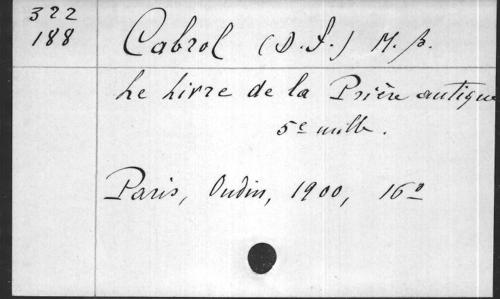 322
188
Cabrol (D. F.) M. b.
Le Livre de la Prière antique
5e mille.
Paris, Oudin, 1900, 16°